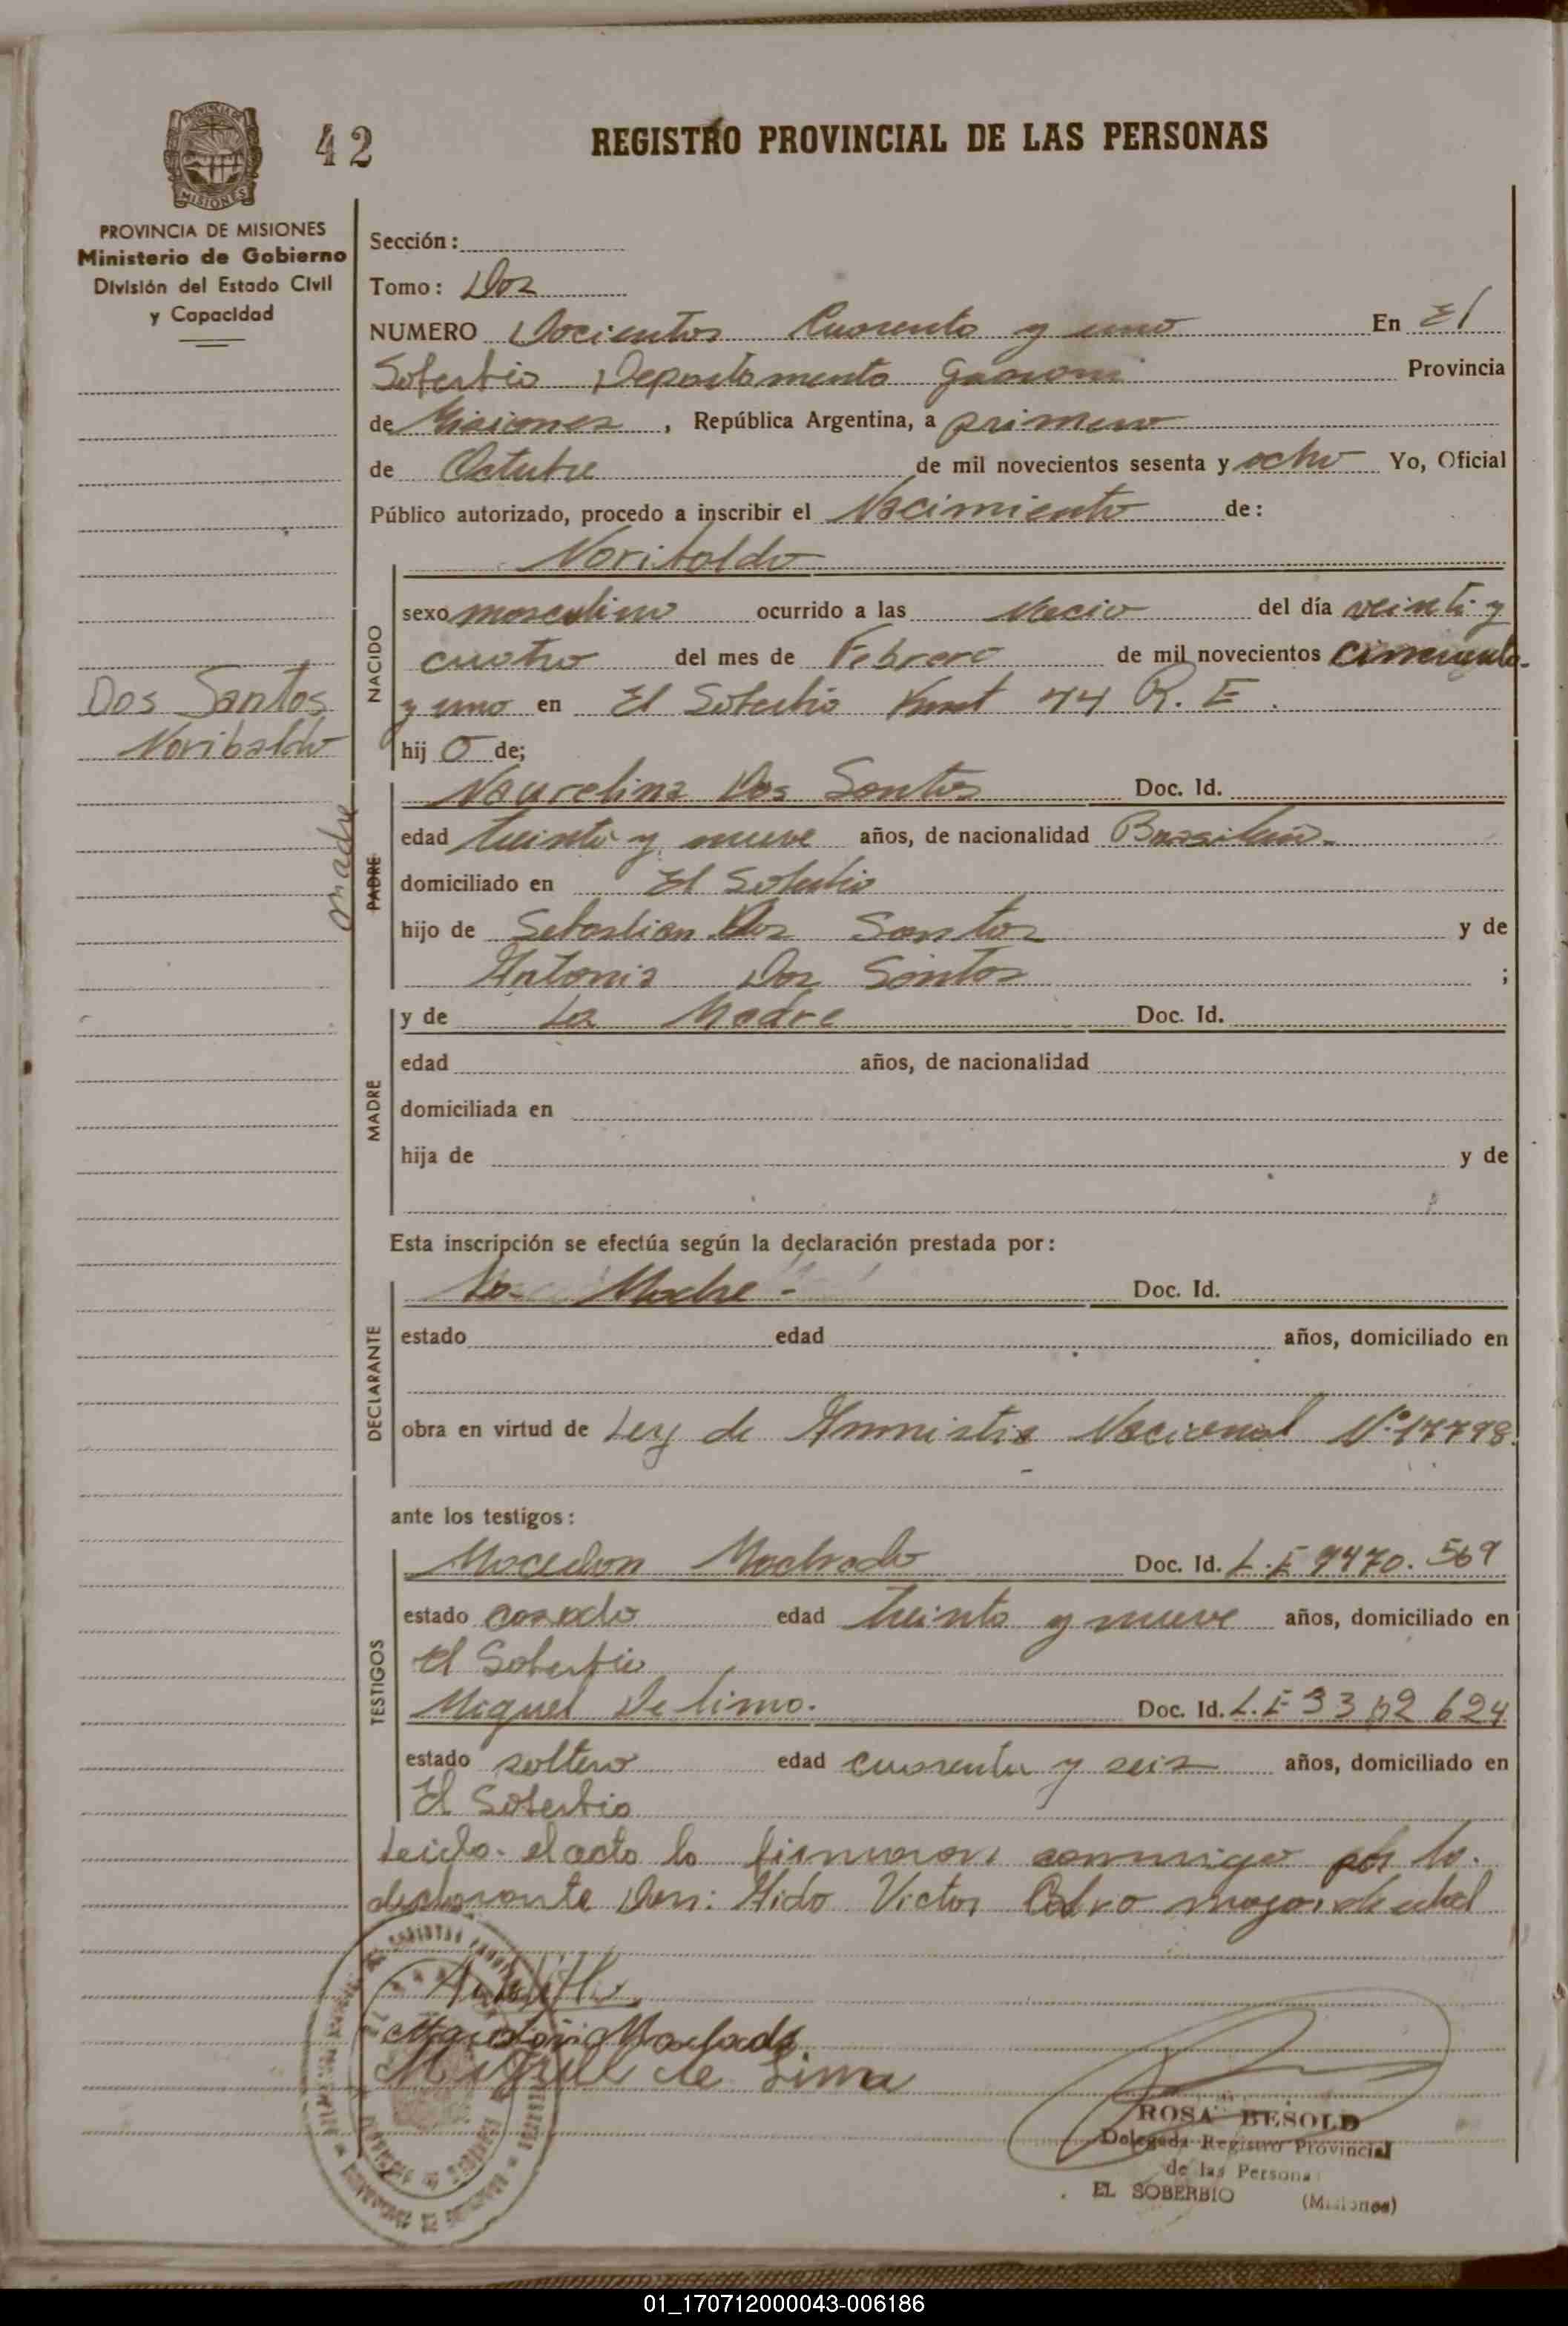 42
REGISTRO PROVINCIAL DE LAS PERSONAS
PROVINCIA DE MISIONES
Ministerio de Gobierno
División del Estado Civil
y Capacidad
Sección:
Tomo: Dos
NUMERO Docientos Cuarenta y uno En El
Soberbio Departamento Guarani Provincia
de Misiones, República Argentina, a primero
de Octubre de mil novecientos sesenta y ocho Yo, Oficial
Público autorizado, procedo a inscribir el Nacimiento de:
Noribaldo
NACIDO
sexo masculino ocurrido a las Nacio del día veinti y
cuatro del mes de Febrero de mil novecientos cincuenta
y uno en El Soberbio 44 R. E.
hij o de;
Dos Santos
Noribaldo
Naurelina Dos Santos Doc. Id.
madre
PADRE
edad treinta y nueve años, de nacionalidad
domiciliado en El Soberbio
hijo de Sebastian Dos Santos y de
Antonia Dos Santos ;
MADRE
y de La Madre Doc. Id.
edad años, de nacionalidad
domiciliada en
hija de y de
Esta inscripción se efectúa según la declaración prestada por:
DECLARANTE
La Madre - Doc. Id.
estado edad años, domiciliado en
obra en virtud de Ley de Amnistia Nacional Nº 17798
ante los testigos:
TESTIGOS
Machado Doc. Id. L.E 7470.569
estado casado edad treinta y nueve años, domiciliado en
El Soberbio
Miguel De lima. Doc. Id. L.E 624
estado soltero edad cuarenta y seis años, domiciliado en
El Soberbio
Leida el acta la firmaron conmigo por la
declarante Don: Victor mayor de edad
Machado
Miguel de Lima
ROSA BESOLD
Delegada Registro Provincial
de las Persona
EL SOBERBIO (Misiones)
01_170712000043-006186